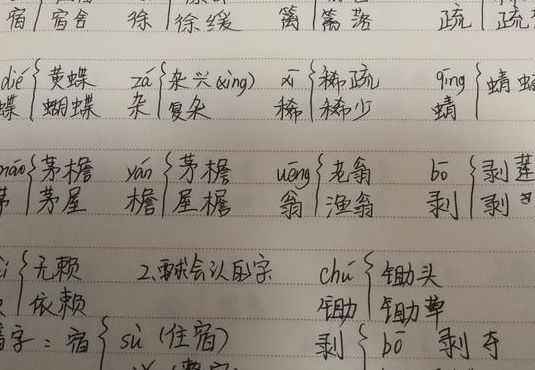 宿 宿舍 徐 徐缓 篱 篱落 疏 疏
dié 黄蝶 zá 杂兴(xìng) xī 稀疏 qīng 蜻
蝶 蝴蝶 杂 复杂 稀 稀少 蜻
máo 茅檐 yán 茅檐 wēng 老翁 bō 剥莲
茅 茅屋 檐 屋檐 翁 渔翁 剥 剥
无赖 2、要求会认的字 chú 锄头
依赖 锄 锄草
字：宿 sù (住宿) 剥 bō 剥夺